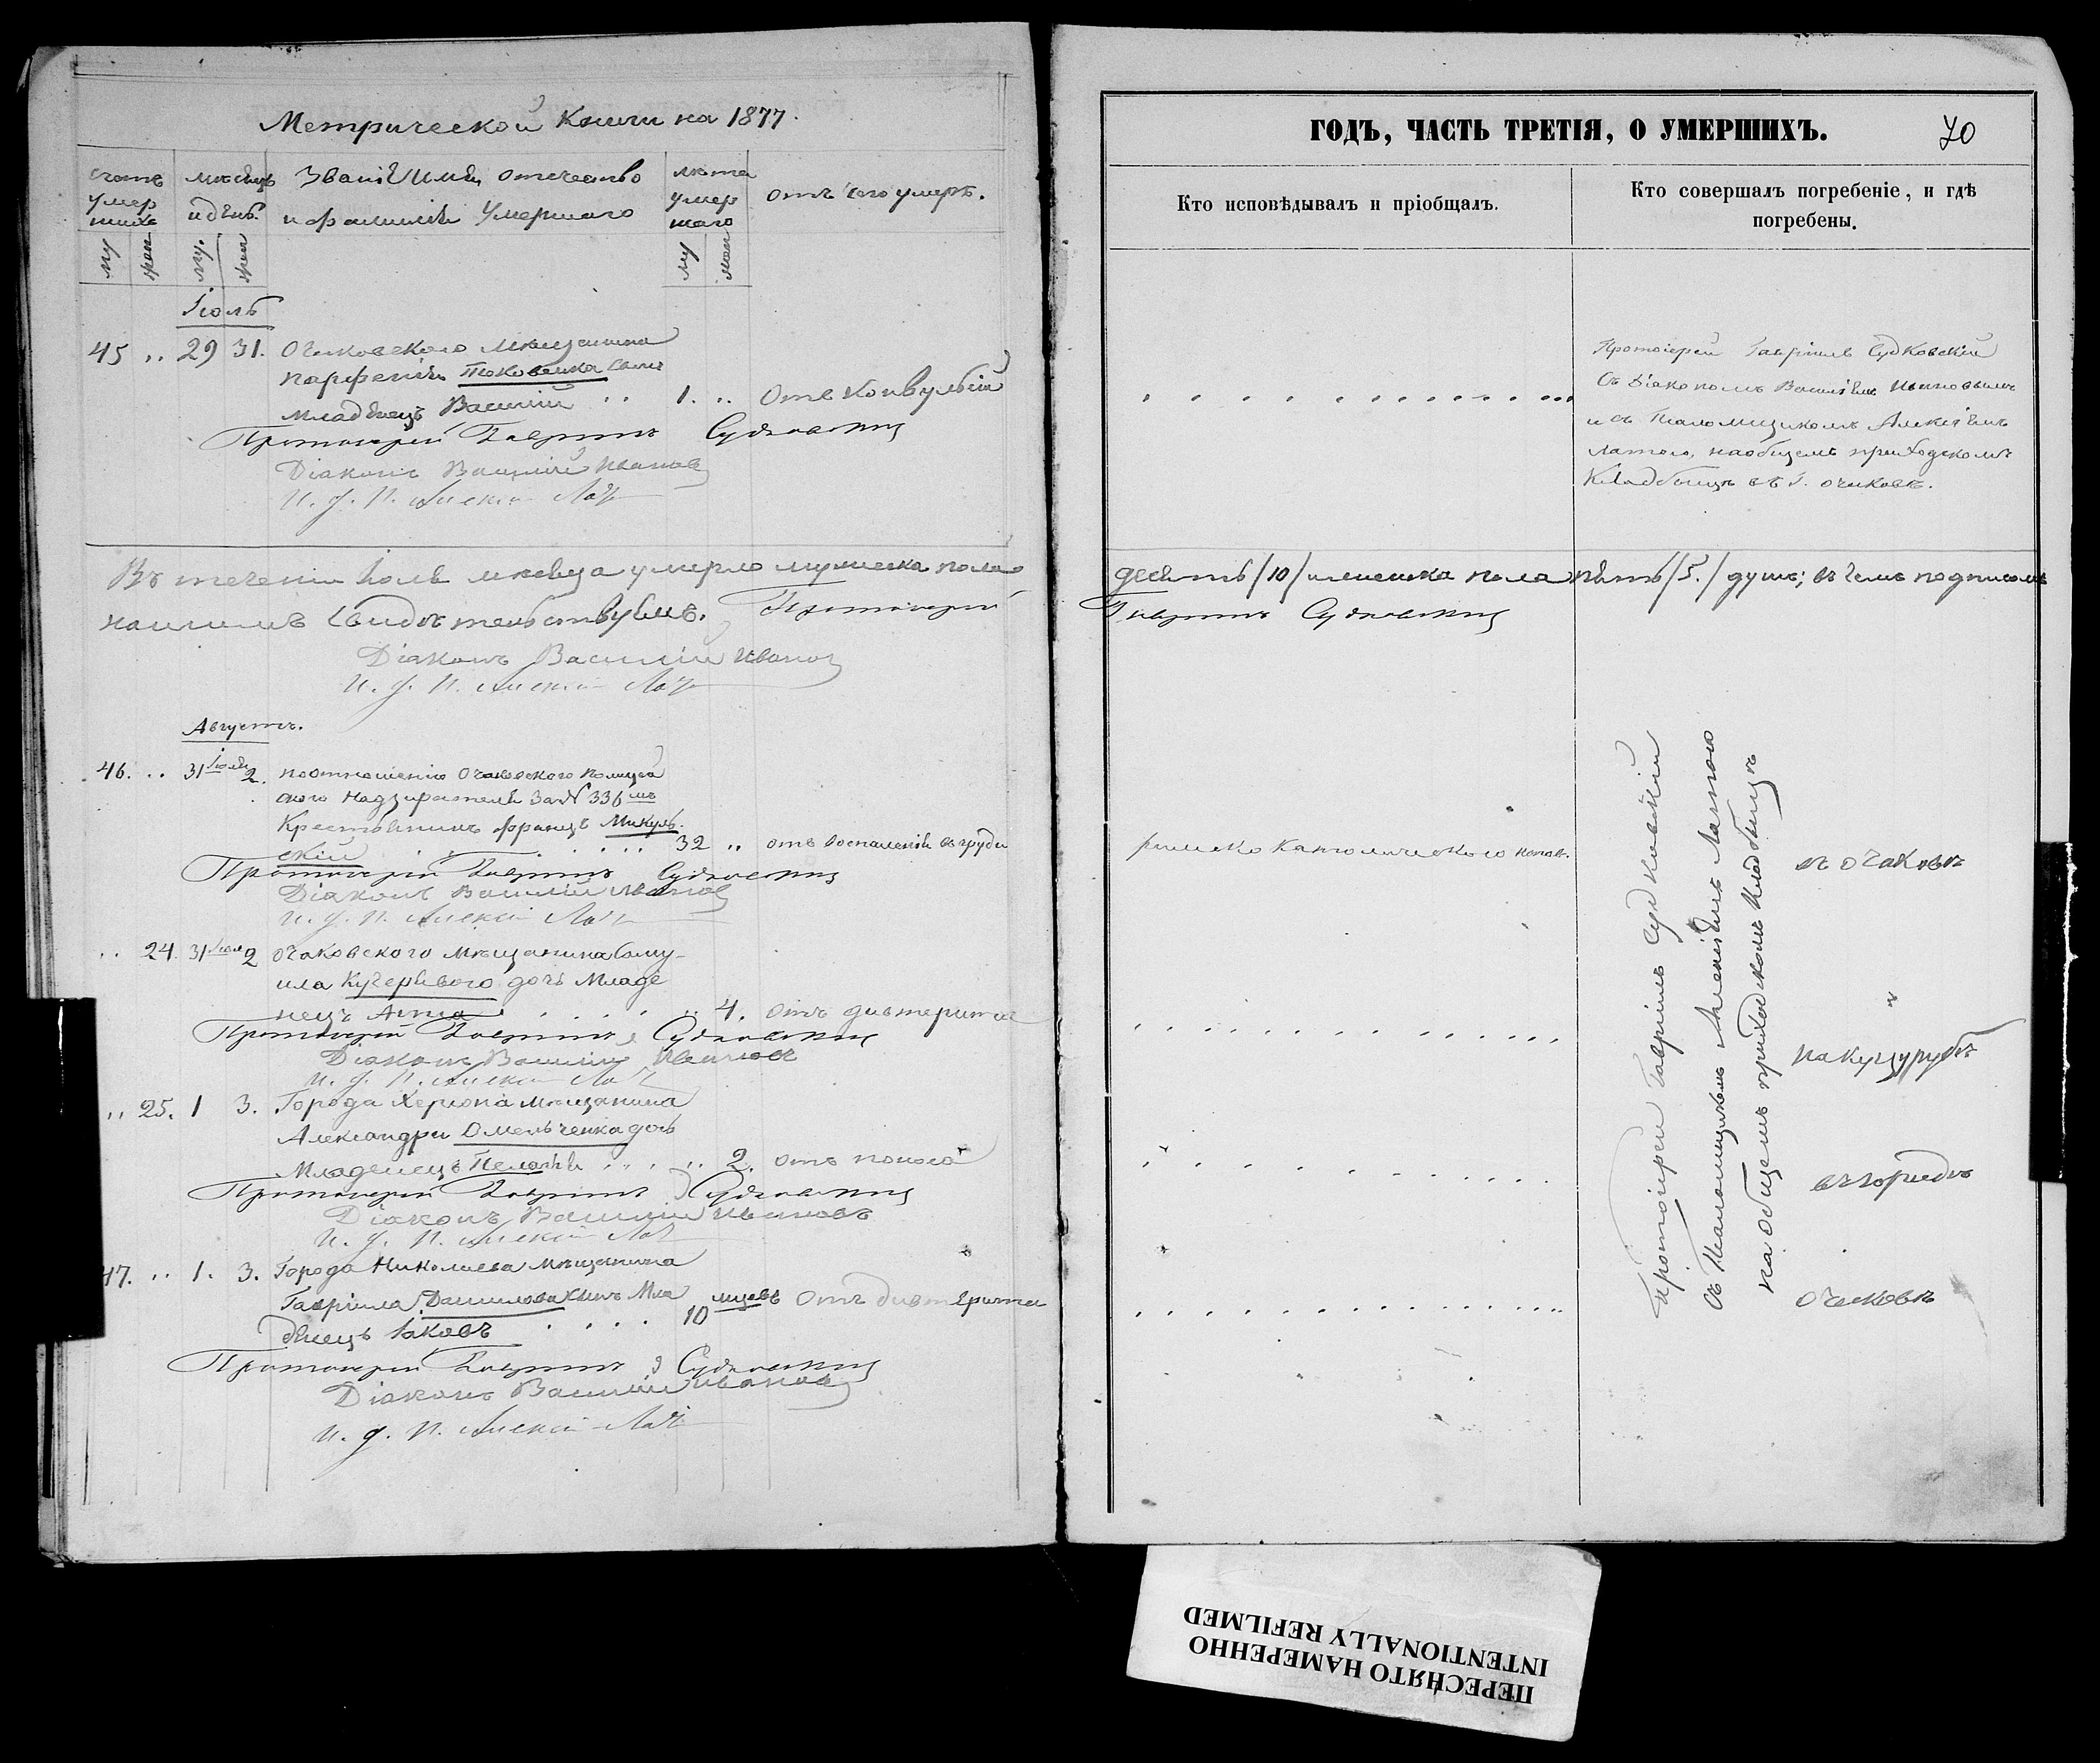 Метрической Книги на 1877.
счетъ умер шихъ
мѣсяцъ и день.
Званіе Имя, отечество
и фамилія Умершаго
лѣта умер шаго
отъ чего умеръ.
му жен
му. жен
му жен
Іюль
45 „ 29 31. Очаковского мѣщанина
Парфенія сынъ
младенецъ Василій „ 1. „ Отъ Конвульсій
Протоіерей Гавріилъ Судковскій
Діаконъ Василій Ивановъ
И. д. П. Алексій
Въ теченіи Іюля мѣсяца умерло мужеска пола
нашимъ свидѣтельствуемъ. Протоіерей
Діаконъ Василій Ивановъ
И. д. П. Алексій
Августъ.
46. „ 31 Іюля 2. по отношенію Очаковского Полицей
ского Надзирателя за № 336 мъ
Крестьянинъ Францъ Микуль-
скій 32 „ отъ воспаленія въ груди
Протоіерей Гавріилъ Судковскій
Діаконъ Василій Ивановъ
И. д. П. Алексій
„ 24. 31 Іюл 2 Очаковского мѣщанина Саму-
ила Кучерявого дочь Младе
нецъ Анна „ 4. отъ дифтерита
Протоіерей Гавріилъ Судковскій
Діаконъ Василій Ивановъ
И. д. П. Алексій
„ 25. 1 3. Города Херсона мѣщанина
Александра Омельченка дочь
Младенецъ Пелагія „ 2. отъ поноса
Протоіерей Гавріилъ Судковскій
Діаконъ Василій Ивановъ
И. д. П. Алексій
47. „ 1. 3. Города Николаева мѣщанина
Гавріила Данилова сынъ Мла
денецъ Іаковъ 10 мцевъ Отъ дифтерита
Протоіерей Гавріилъ Судковскій
Діаконъ Василій Ивановъ
И. д. П. Алексій
ГОДЪ, ЧАСТЬ ТРЕТІЯ, О УМЕРШИХЪ. 70
Кто исповѣдывалъ и пріобщалъ.
Кто совершалъ погребеніе, и гдѣ
погребены.
Протоіерей Гавріилъ Судковскій
Съ Діакономъ Василіемъ Ивановымъ
и съ Псаломщикомъ Алексіемъ
на общемъ приходскомъ
Кладбищѣ въ Г. Очаковѣ.
десять /10/ и женска пола пять /5./ душъ; въ чемъ подписомъ
Гавріилъ Судковскій
римско Католического исповѣ.
Протоіерей Гавріилъ Судковскій
съ Псаломщикомъ Алексіемъ
на общемъ приходскомъ Кладбищѣ
въ Очаковѣ
на Куцурубѣ
въ городѣ
Очаковѣ
ПЕРЕСНЯТО НАМЕРЕННО
INTENTIONALLY REFILMED